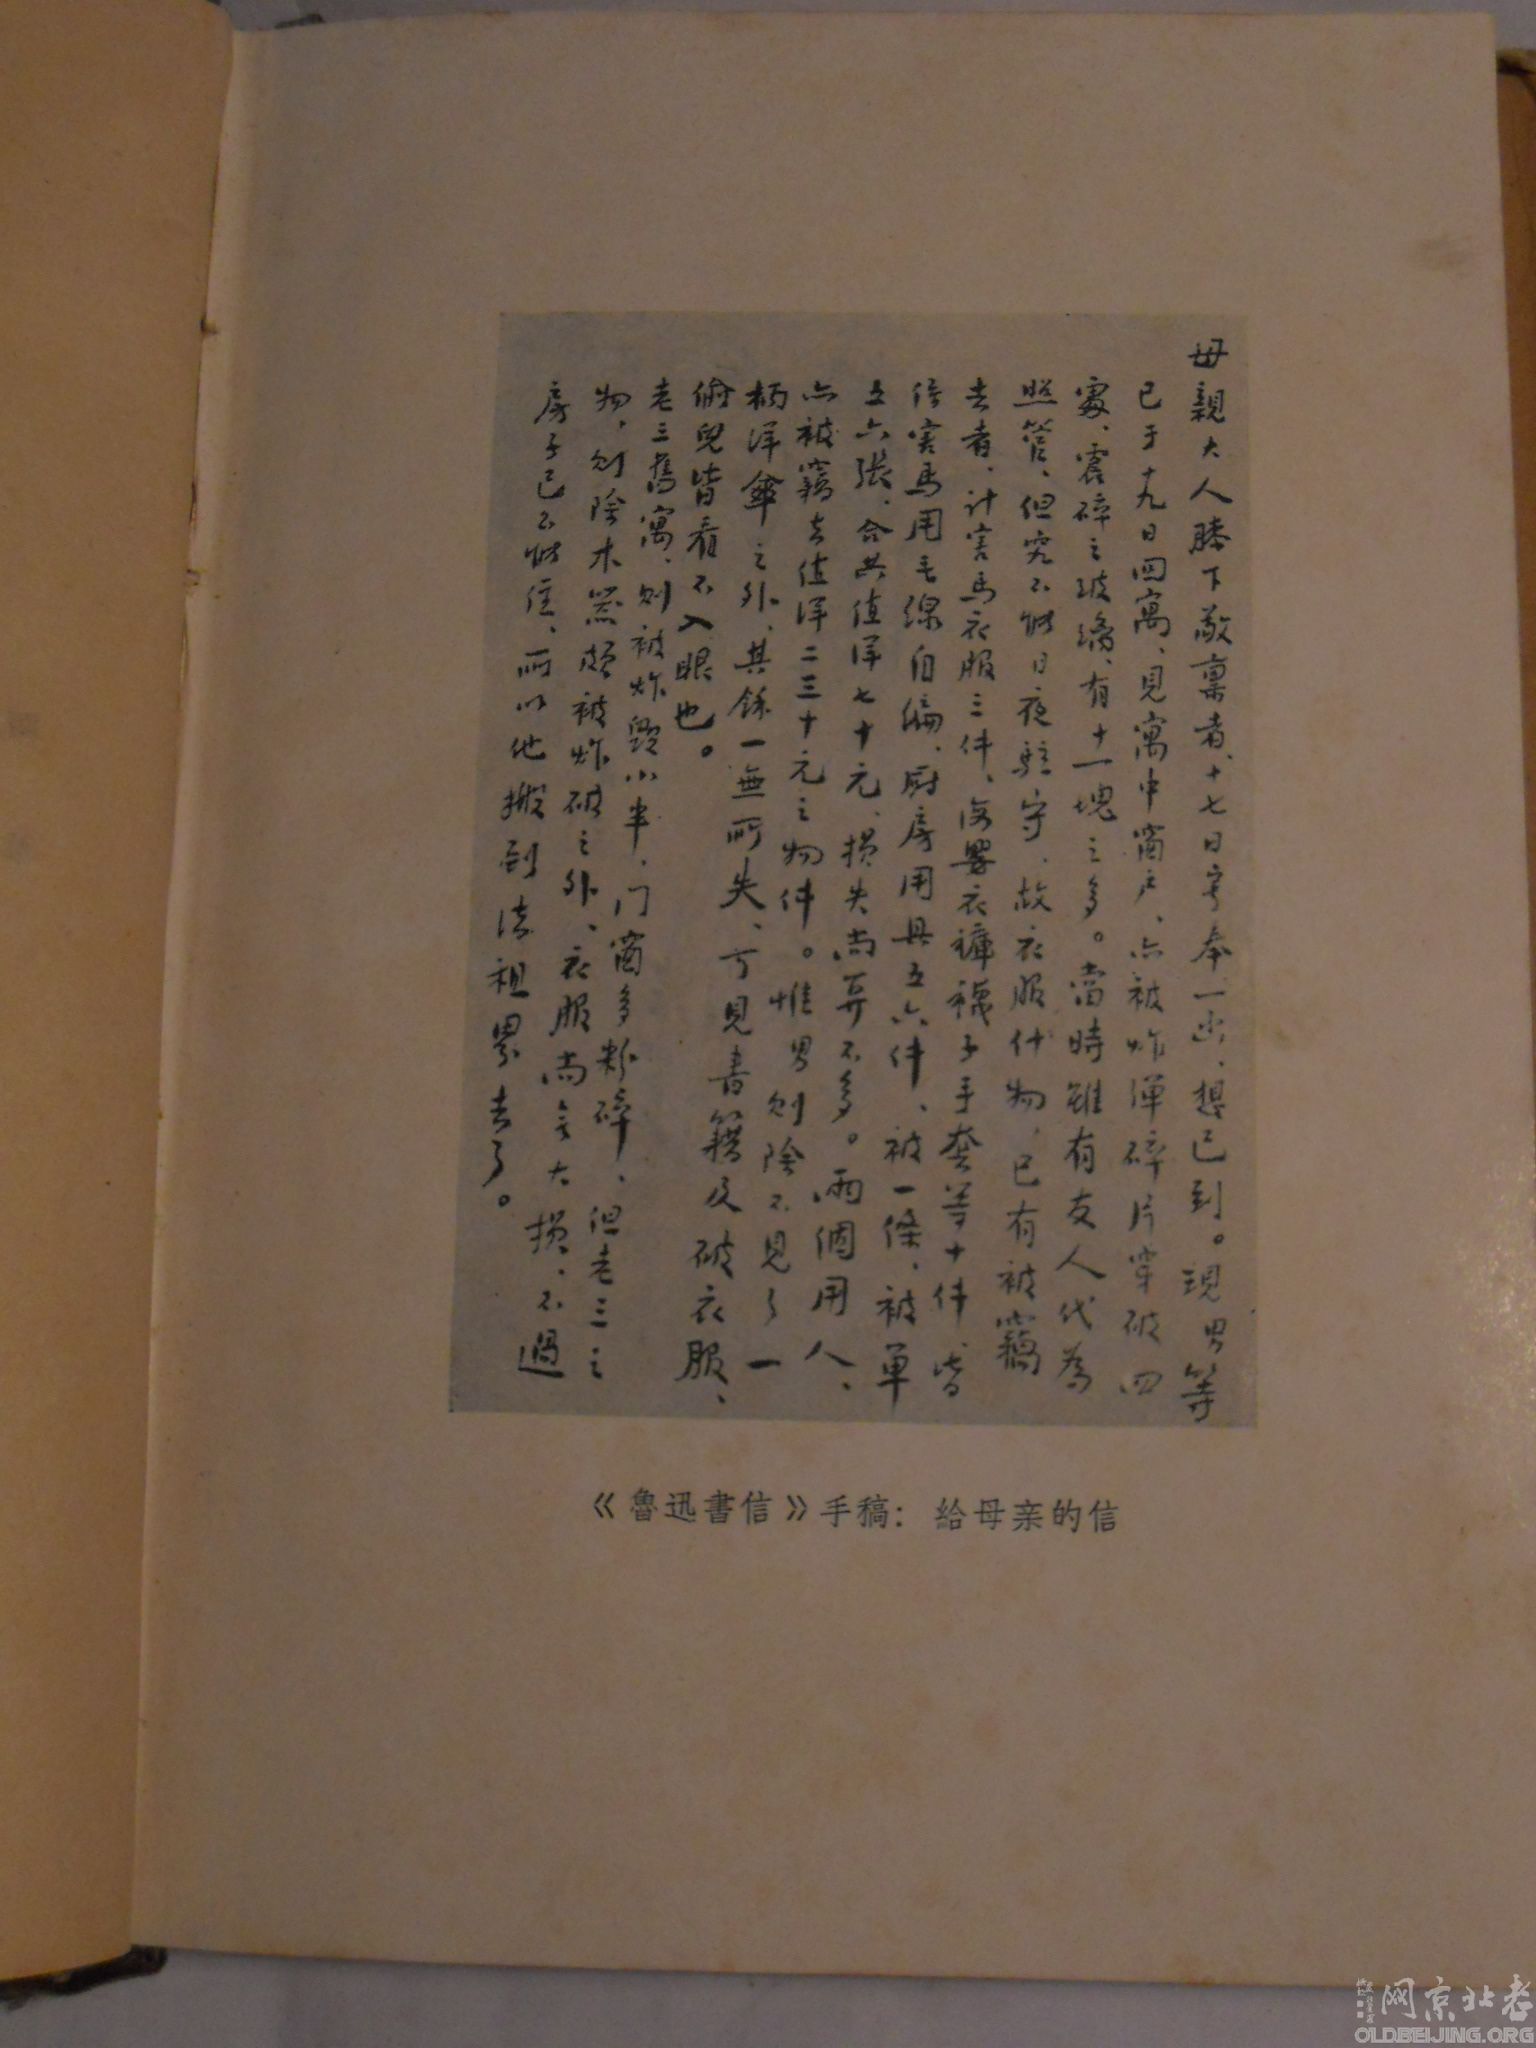 母親大人膝下敬稟者、十七日寄奉一函、想已到。現男等
已于十九日回寓、見寓中窗戶、亦被炸彈碎片穿破四
處、震碎之玻璃、有十一塊之多。當時雖有友人代為
照管、但究不能日夜駐守、故衣服什物、已有被竊
去者、計害馬衣服三件、海嬰衣褲襪子手套等十件、皆
係害馬用毛線自編、廚房用具五六件、被一條、被單
五六張、合共值洋七十元、損失尚算不多。兩個用人、
亦被竊去值洋二三十元之物件。惟男則除不見了一
柄洋傘之外、其餘一無所失、可見書籍及破衣服、
偷兒皆看不入眼也。
老三舊寓、則被炸毀小半、门窗多粉碎、但老三之
物、則除木器頗被炸破之外、衣服尚無大損、不過
房子已不能住、所以他搬到法租界去了。
《魯迅書信》手稿：給母亲的信
老北京网
OLDBEIJING.ORG